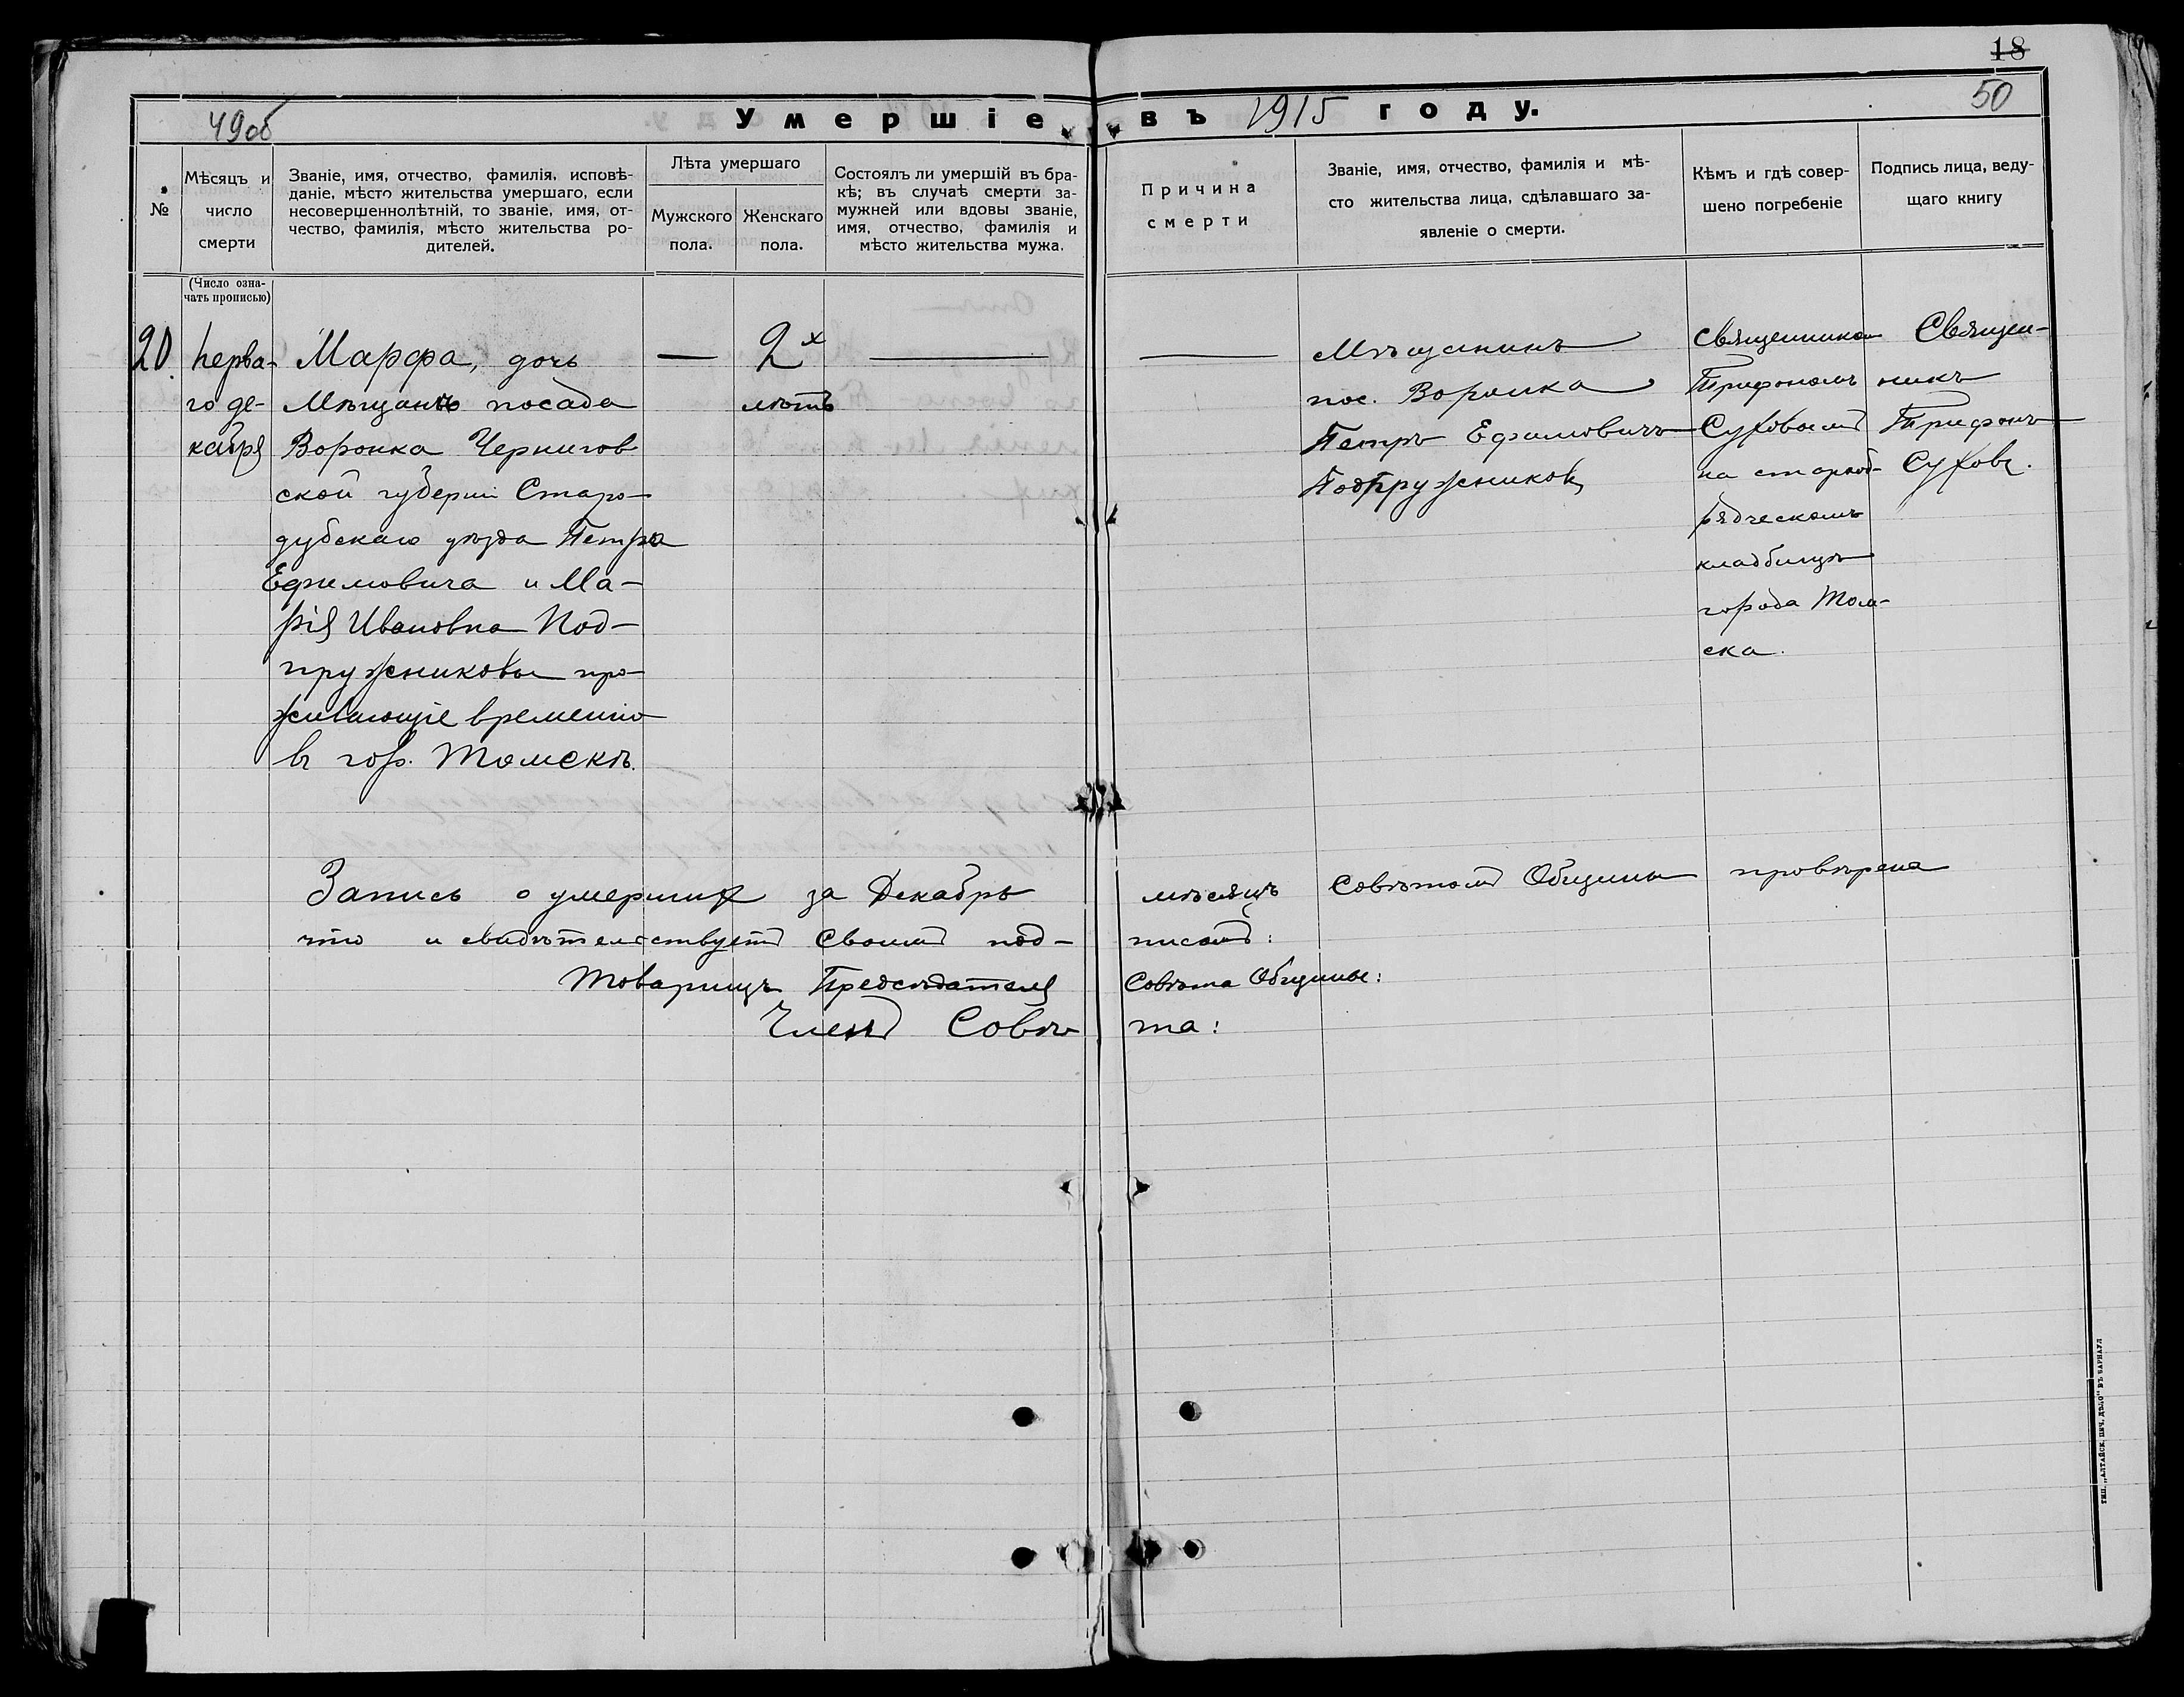 18
49об
Умершіе въ 1915 году.
50
№
Мѣсяцъ и
число
смерти
Званіе, имя, отчество, фамилія, исповѣ-
даніе, мѣсто жительства умершаго, если
несовершеннолѣтній, то званіе, имя, от-
чество, фамилія, мѣсто жительства ро-
дителей.
Лѣта умершаго
Мужского
пола.
Женскаго
пола.
Состоялъ ли умершій въ бра-
кѣ; въ случаѣ смерти за-
мужней или вдовы званіе,
имя, отчество, фамилія и
мѣсто жительства мужа.
Причина
смерти
Званіе, имя, отчество, фамилія и мѣ-
сто жительства лица, сдѣлавшаго за-
явленіе о смерти.
Кѣмъ и гдѣ совер-
шено погребеніе
Подпись лица, веду-
щаго книгу
(Число озна-
чать прописью)
20.
перва-
го де-
кабря
Марфа, дочь
Мѣщанъ посада
Воронка Чернигов
ской губерніи Старо-
дубскаго уѣзда Петра
Ефимовича и Ма-
рія Ивановна Под-
пружниковы про-
живающіе временно
въ гор. Томскѣ.
—
2х
лѣтъ
—
—
Мѣщанинъ
пос. Воронка
Петръ Ефимовичъ
Подпружниковъ
Священником
Трифономъ
Суховымъ
на старооб-
рядческомъ
кладбищѣ
города Том-
ска.
Священ-
никъ
Трифонъ
Суховъ.
Запись о умершихъ за Декабрь мѣсяцъ Совѣтомъ Общины провѣрена
что и свидѣтельствуетъ своимъ под- писомъ:
Товарищъ Предсѣдателя Совѣта Общины:
Членъ Совѣ- та:
ТИП. „АЛТАЙСК. ПЕЧ. ДѢЛО" ВЪ БАРНАУЛ